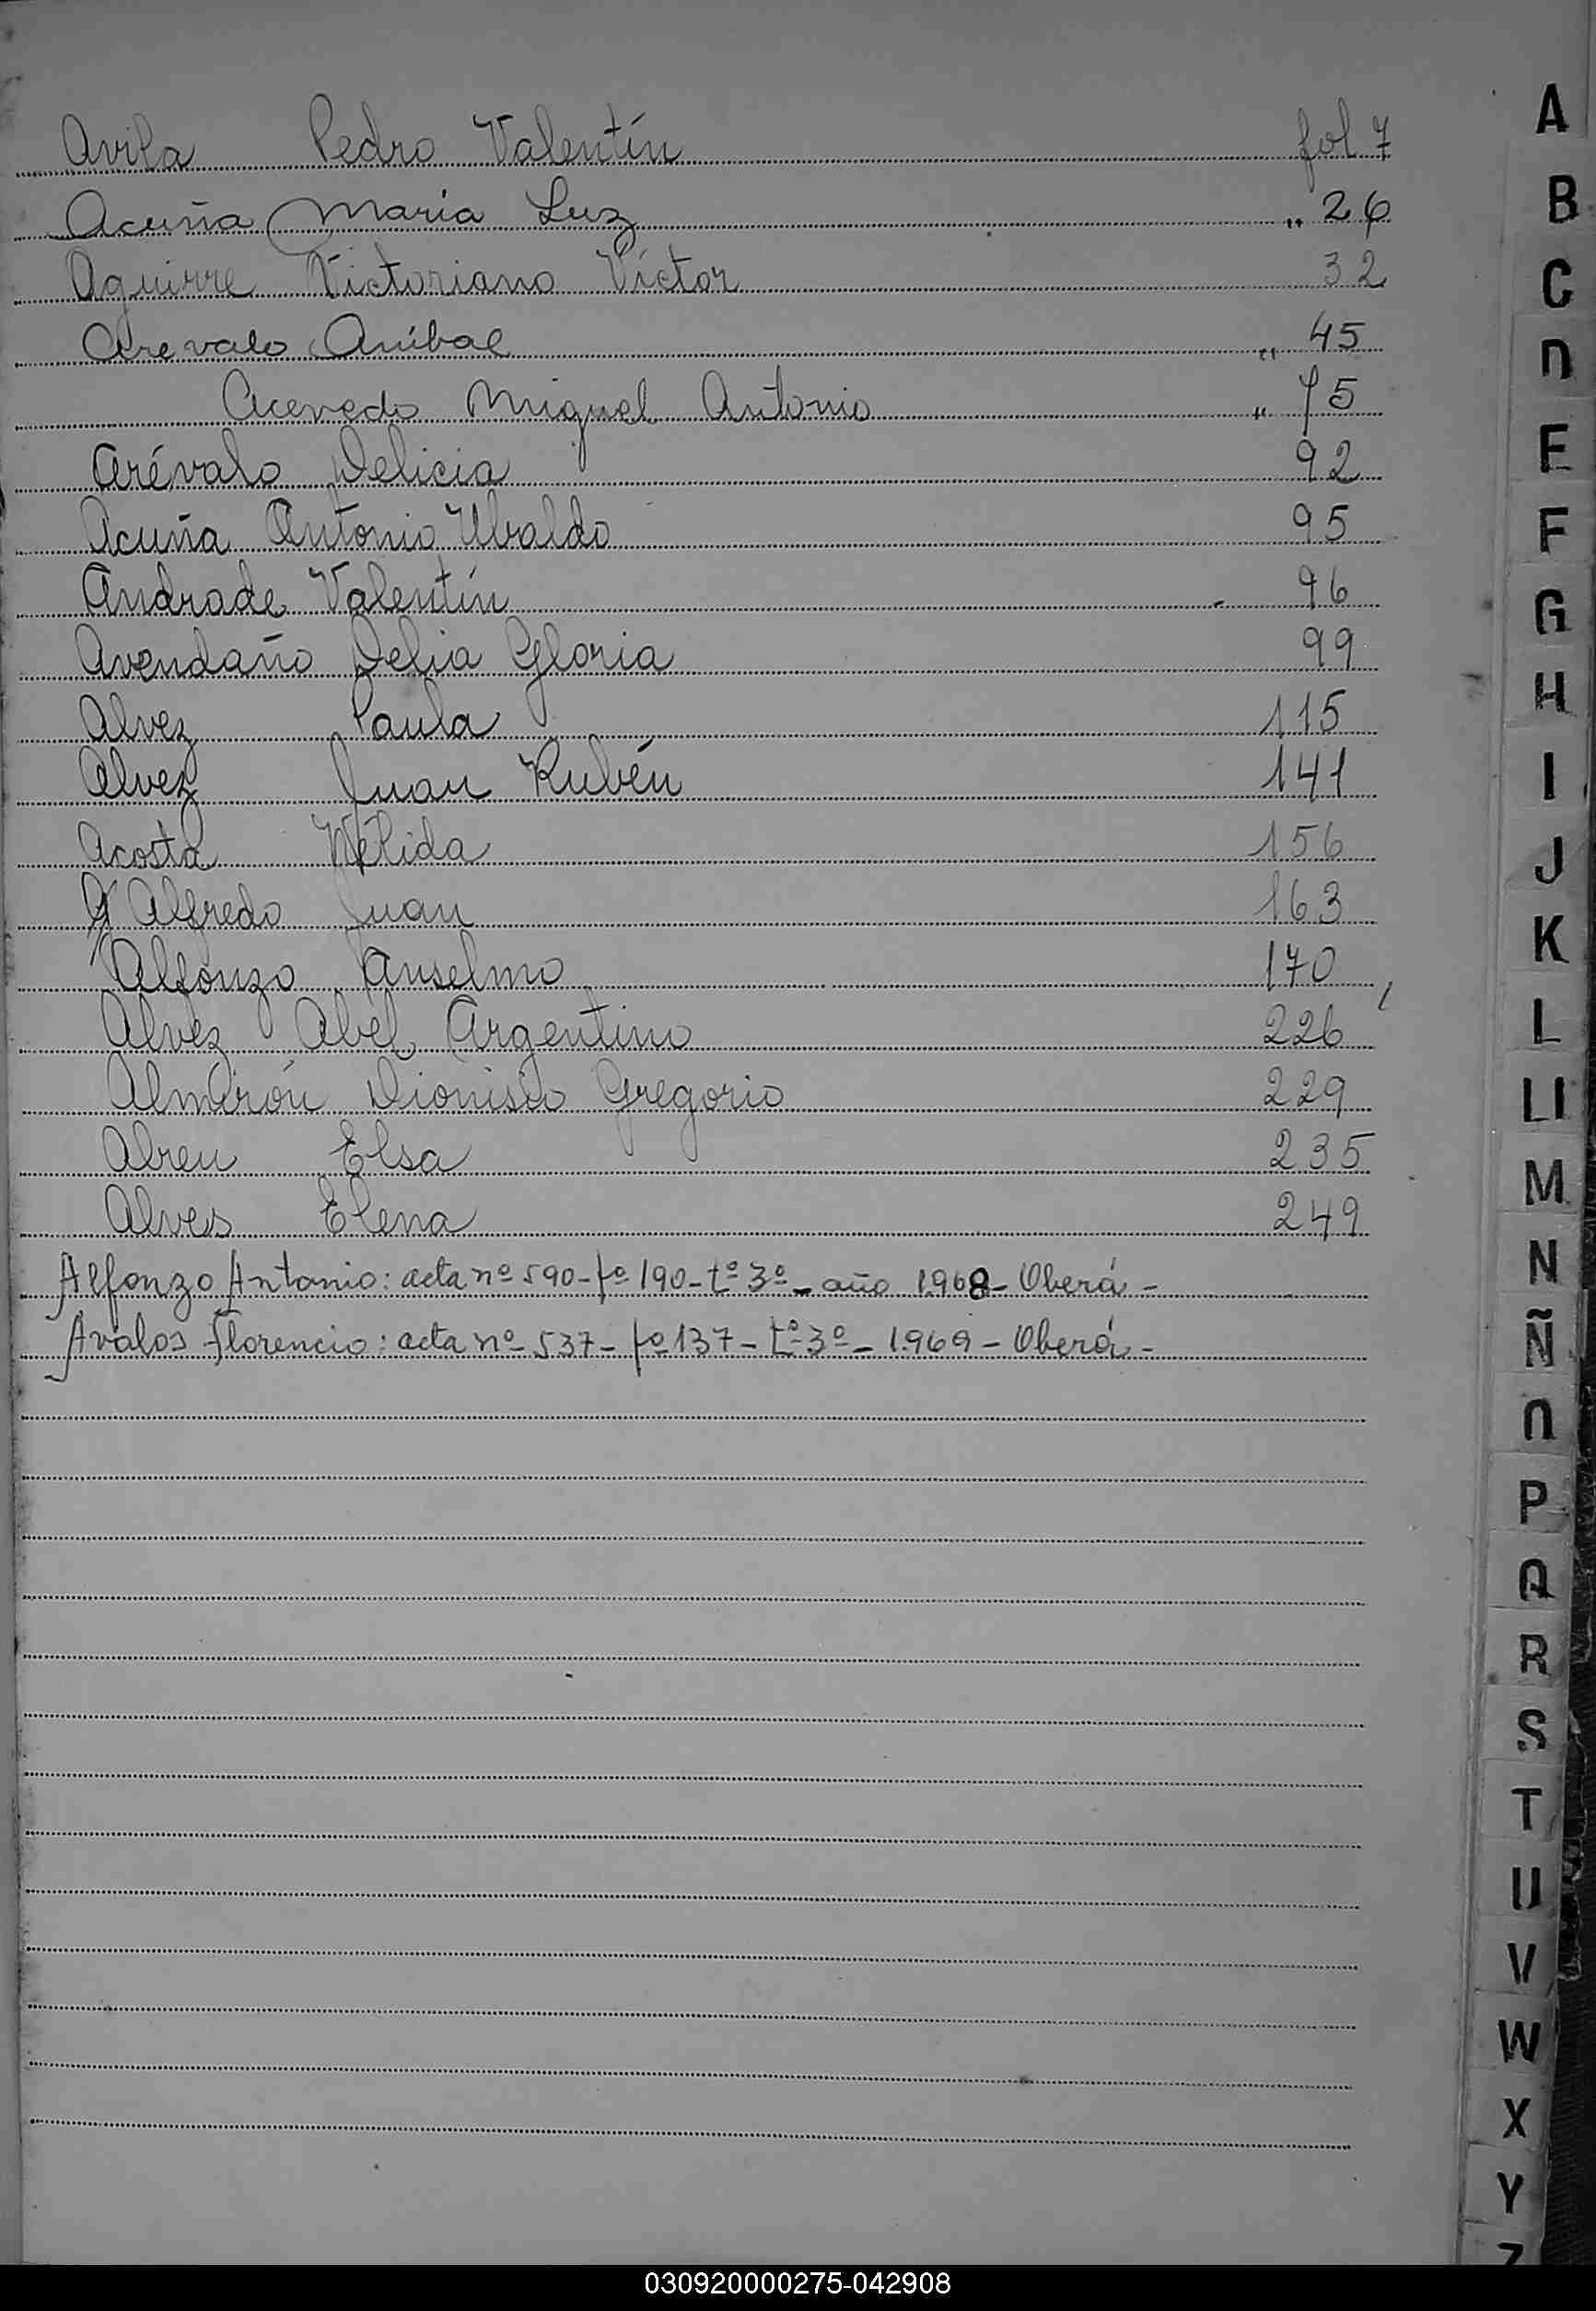 Avila Pedro Valentín fol 7
Acuña Maria Luz " 26
Aguirre Victoriano Víctor 32
Arevalo Aníbal " 45
Acevedo Miguel Antonio " 75
Arévalo Delicia 92
Acuña Antonio Ubaldo 95
Andrade Valentín - 96
Avendaño Delia Gloria 99
Alvez Paula 115
Alvez Juan Rubén 141
Acosta Nélida 156
Alfredo Juan 163
Alfonzo Anselmo 170
Alvez Abel Argentino 226
Almirón Dionisio Gregorio 229
Abreu Elsa 235
Alves Elena 249
Alfonzo Antonio: acta nº 590 - fº 190 - tº 3º - año 1.968 - Oberá -
Avalos Florencio: acta nº 537 - fº 137 - tº 3º - 1.969 - Oberá -
A
B
C
D
E
F
G
H
I
J
K
L
Ll
M
N
Ñ
O
P
Q
R
S
T
U
V
W
X
Y
Z
030920000275-042908